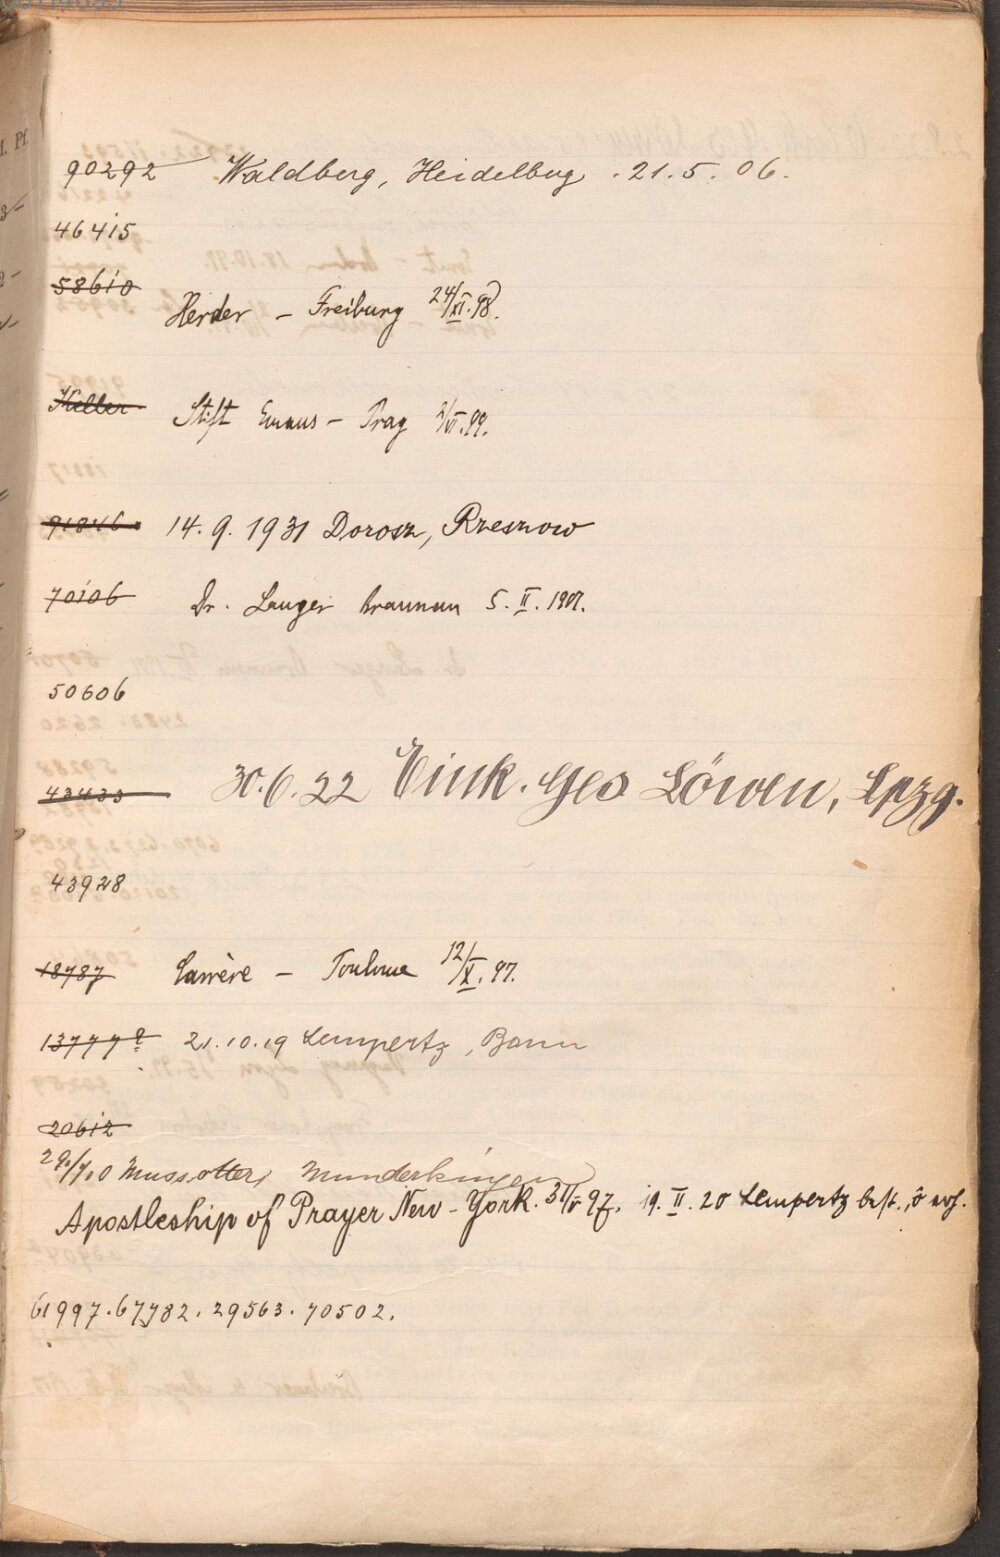 90292 Waldberg, Heidelberg . 21.5.06.
46415
58610
Herder – Freiburg 24/XI.98.
Keller
Stift Emaus – Prag 2/VI.99.
91846 14.9.1931 Dorosz, Rzeszow
70106 Dr. Langer Braunau 5.II.1907.
50606
43433 30.6.22 Eink. Ges Löwen, Lpzg.
43928
18787 Carrère – Toulouse 12/X.97.
13777? 21.10.19 Lempertz, Bonn
20612
Mussotter, Munderkingen
Apostleship of Prayer New-York. 31/V 97. 19.II.20 Lempertz best.,
61997.67782.29563.70502.